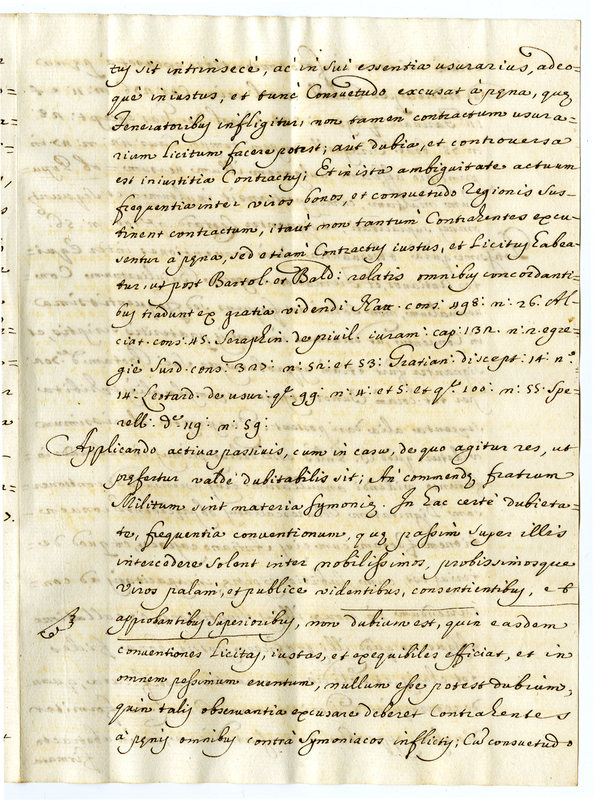 tus sit intrinsecè, ac in sui essentia usurarius, adeo=
què iniustus, et tunc Consuetudo excusat à pęna, quę
Feneratoribus infligitur, non tamen contractum usura=
rium licitum facere potest; aut dubia, et controversa
est iniustitia Contractus; Et in ista ambiguitate actuum
frequentia inter viros bonos, et consuetudo Regionis sus=
tinent contractum, itaut non tantum Contrahentes excu=
sentur à pęna, sed etiam Contractus iustus, et Licitus habea=
tur, ut post Bartol. et Bald: relatis omnibus concordanti=
bus tradunt ex gratia videndi Natt. cons: 498: n: 26. Al=
ciat. cons: 45. Seraphin. de privil. iuram: cap: 132. n: 2. egre=
giè Surd. cons: 327: n: 52: et 53: Gratian: discept: 14: n.º
14: Leotard. de usur: q: 99: n: 4: et 5: et q: 100: n: 55: Spe=
rell: d: 119: n: 59:
Applicando activa passivis, cum in casu, de quo agitur res, ut
pręfertur valdè dubitabilis sit; An commendę fratrum
Militum sint materia symonię. In hac certè dubieta=
te, frequentia conventionum, quę passim super illis
intercedere solent inter nobilissimos, probissimosque
viros palam, et publicè videntibus, consentientibus, et
approbantibus Superioribus, non dubium est, quin easdem
conventiones Licitas, iustas, et exequibiles efficiat, et in
omnem pessimum eventum, nullum esse potest dubium,
quin talis observantia excusare deberet Contrahentes
à pęnis omnibus contrà Symoniacos inflictis; Cum consuetudo